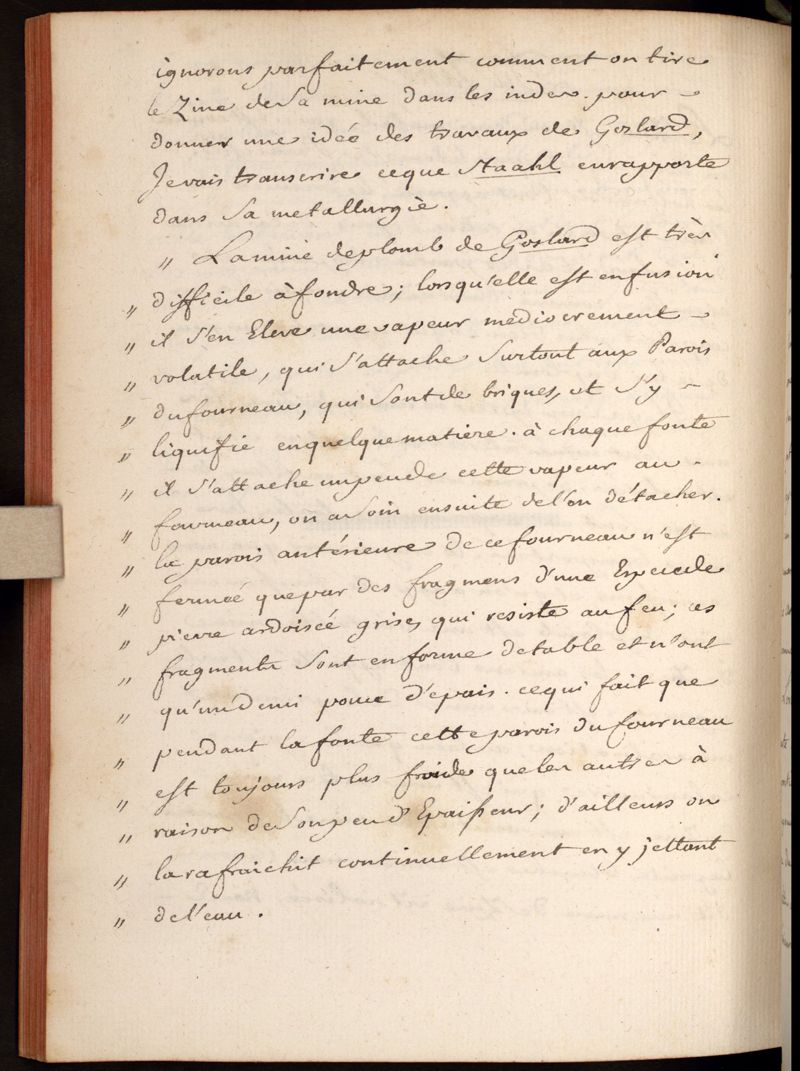 ignorons parfaitement comment on tire
le Zinc de Sa mine dans les indes. pour -
donner une idée des travaux de Goslard,
Je vais transcrire ce que Staahl en rapporte
dans Sa metallurgie.
" La mine de plomb de Goslard est très
" difficile à fondre; lorsqu'elle est en fusion
" il s'en Eleve une vapeur mediocrement -
" volatile, qui S'attache Surtout aux Parois
" du fourneau, qui Sont de briques, et S'y -
" liquifie en quelque matiere. à chaque fonte
" il S'attache un peu de cette vapeur au -
" fourneau, on a Soin ensuite de l'en détacher.
" la parois antérieure de ce fourneau n'est
" fermée que par des fragmens d'une Espece de
" pierre ardoisée grise, qui resiste au feu; ces
" fragments Sont en forme de table et n'ont
" qu'un demi pouce d'épais. ce qui fait que
" pendant la fonte cette parois du fourneau
" est toujours plus froide que les autres à
" raison de Son peu d'Epaisseur; d'ailleurs on
" la rafraichit continuellement en y jettant
" de l'eau.